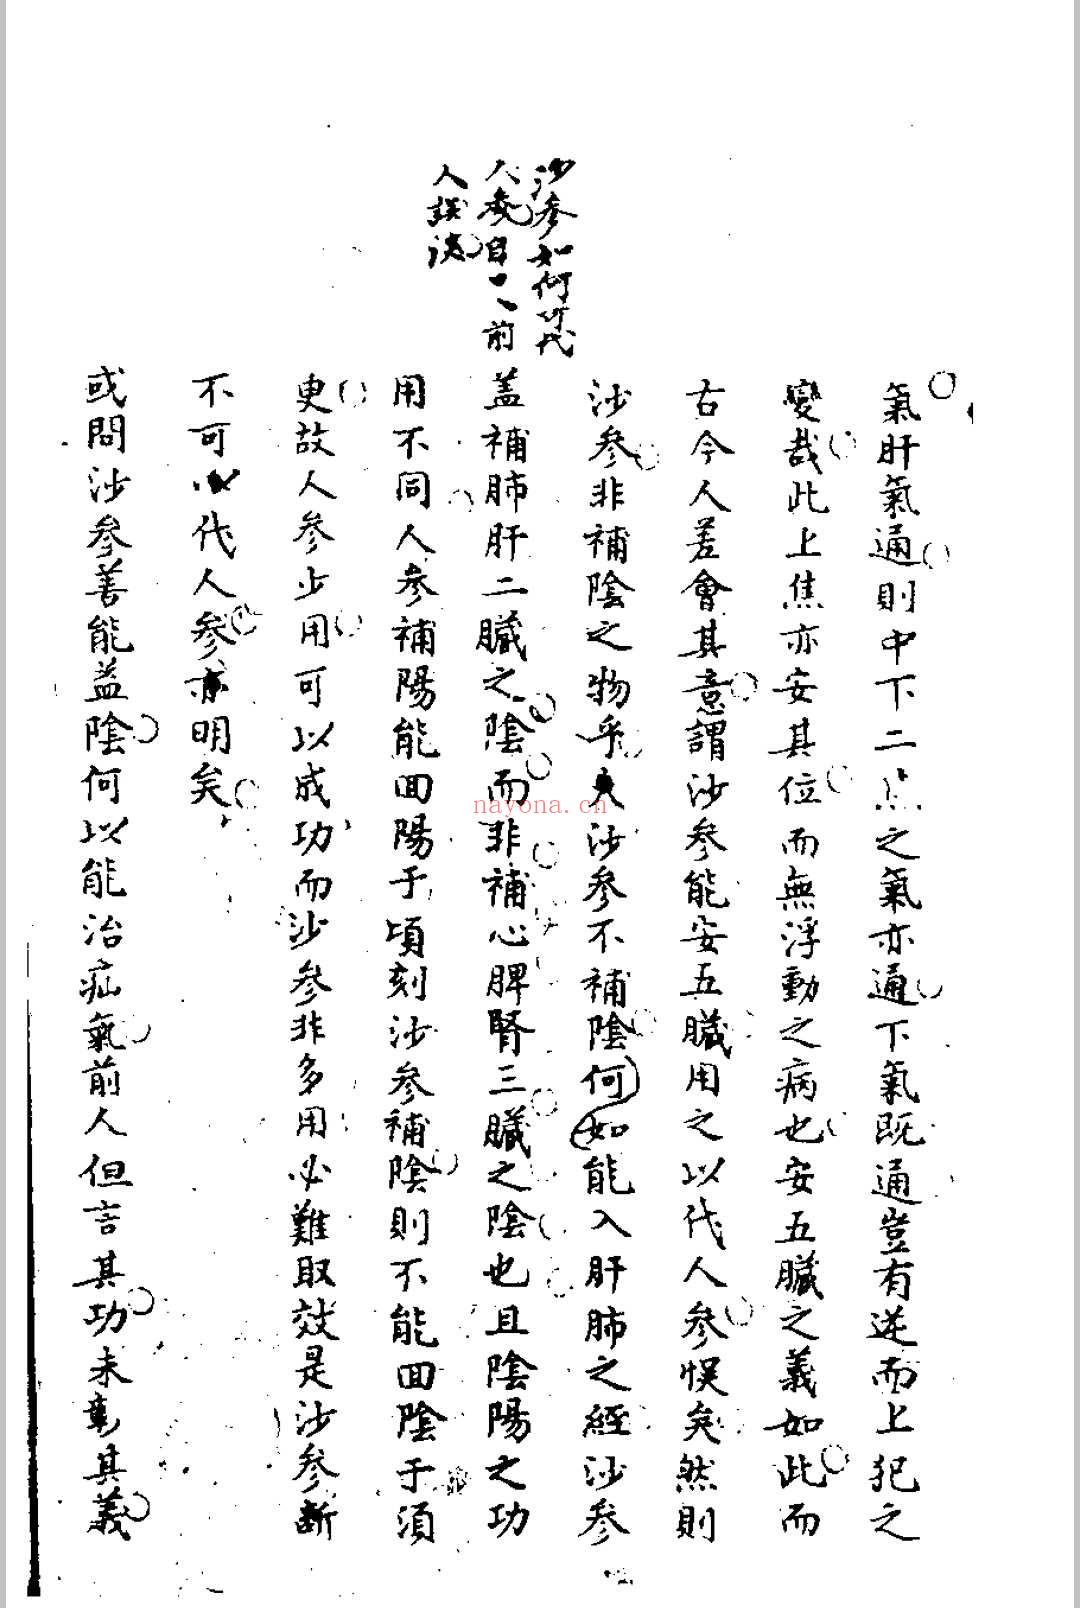 沙參如何可代
人參自
前
人誤
氣肝氣通則中下二焦之氣亦通下氣既通豈有逆而上犯之
變哉此上焦亦安其位而無浮動之病也安五臟之義如此而
古今人差會其意謂沙參能安五臟用之以代人參悞矣然則
沙參非補陰之物乎夫沙參不補陰何如能入肝肺之經沙參
蓋補肺肝二臟之陰而非補心脾腎三臟之陰也且陰陽之功
用不同人參補陽能回陽于頃刻沙參補陰則不能回陰于須
更故人參少用可以成功而沙參非多用必難取效是沙參斷
不可以代人參亦明矣
或問沙參善能益陰何以能治疝氣前人但言其功未彰其義
nayona.cn